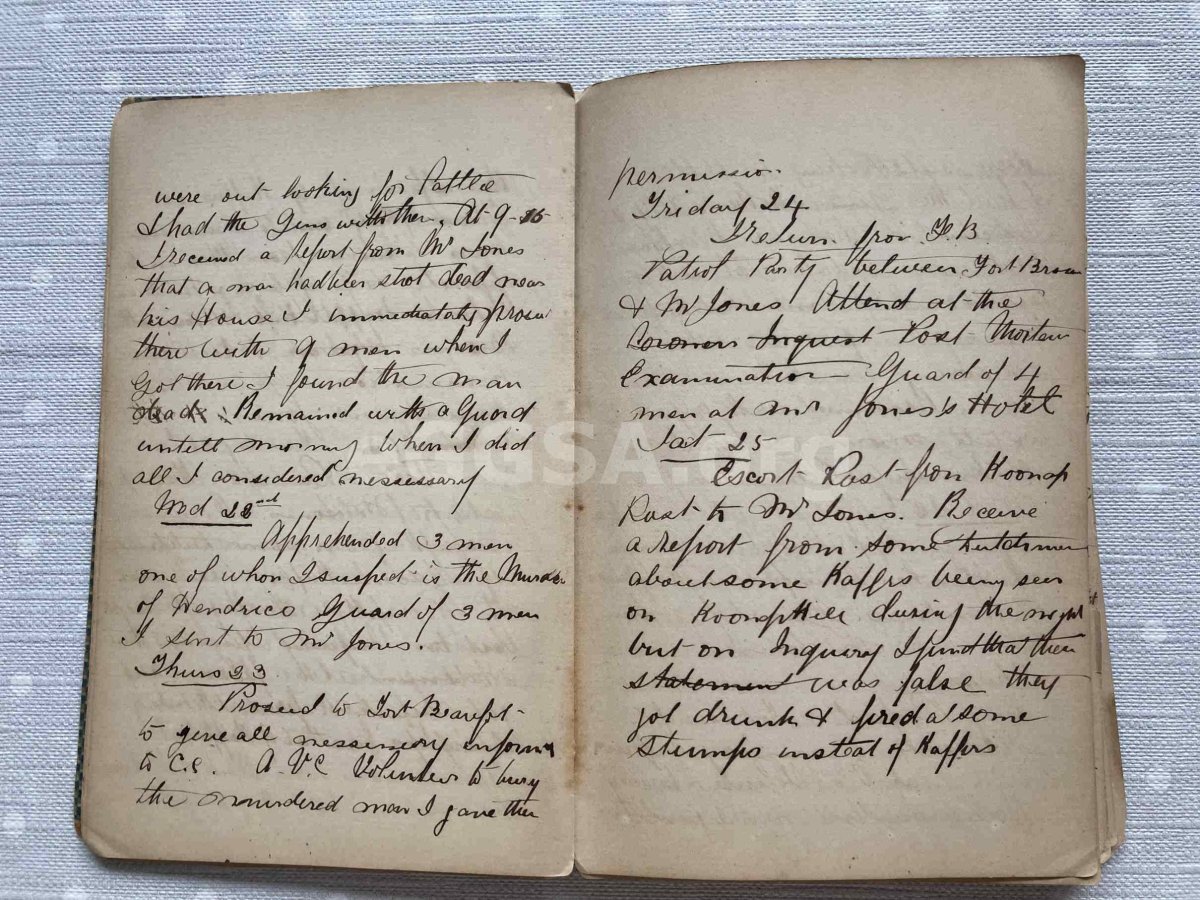 were out looking for Cattle
I had the Guns with them, At 9-15
I received a Report from Mr Jones
that a man had been shot dead near
his House I immediately
there with 9 men when I
got there I found the man
dead. Remained with a Guard
untill morning When I did
all I considered nessessary
Wed 22nd
Apprehended 3 men
one of whom I suspect is the
of Hendrico Guard of 3 men
I sent to Mr Jones.
Thurs 23
Proceed to Fort Beaufort
to give all nessessary
to C.C. A. V.C Volunteer to bury
the murdered man I gave them
permission
Friday 24
Return from F.B.
Patrol Party between Fort Brown
& Mr Jones Attend at the
Coroners Inquest Post Mortem
Examination Guard of 4
men at Mr Jones's Hotel
Sat 25
Escort Post from Koonap
Post to Mr Jones. Receive
a Report from some Dutchmen
about some Kaffrs being seen
on Koonap Hill during the night
but on Inquiry I find that their
statement was false they
got drunk & fired at some
Stumps insteat of Kaffrs
eGGSA.org